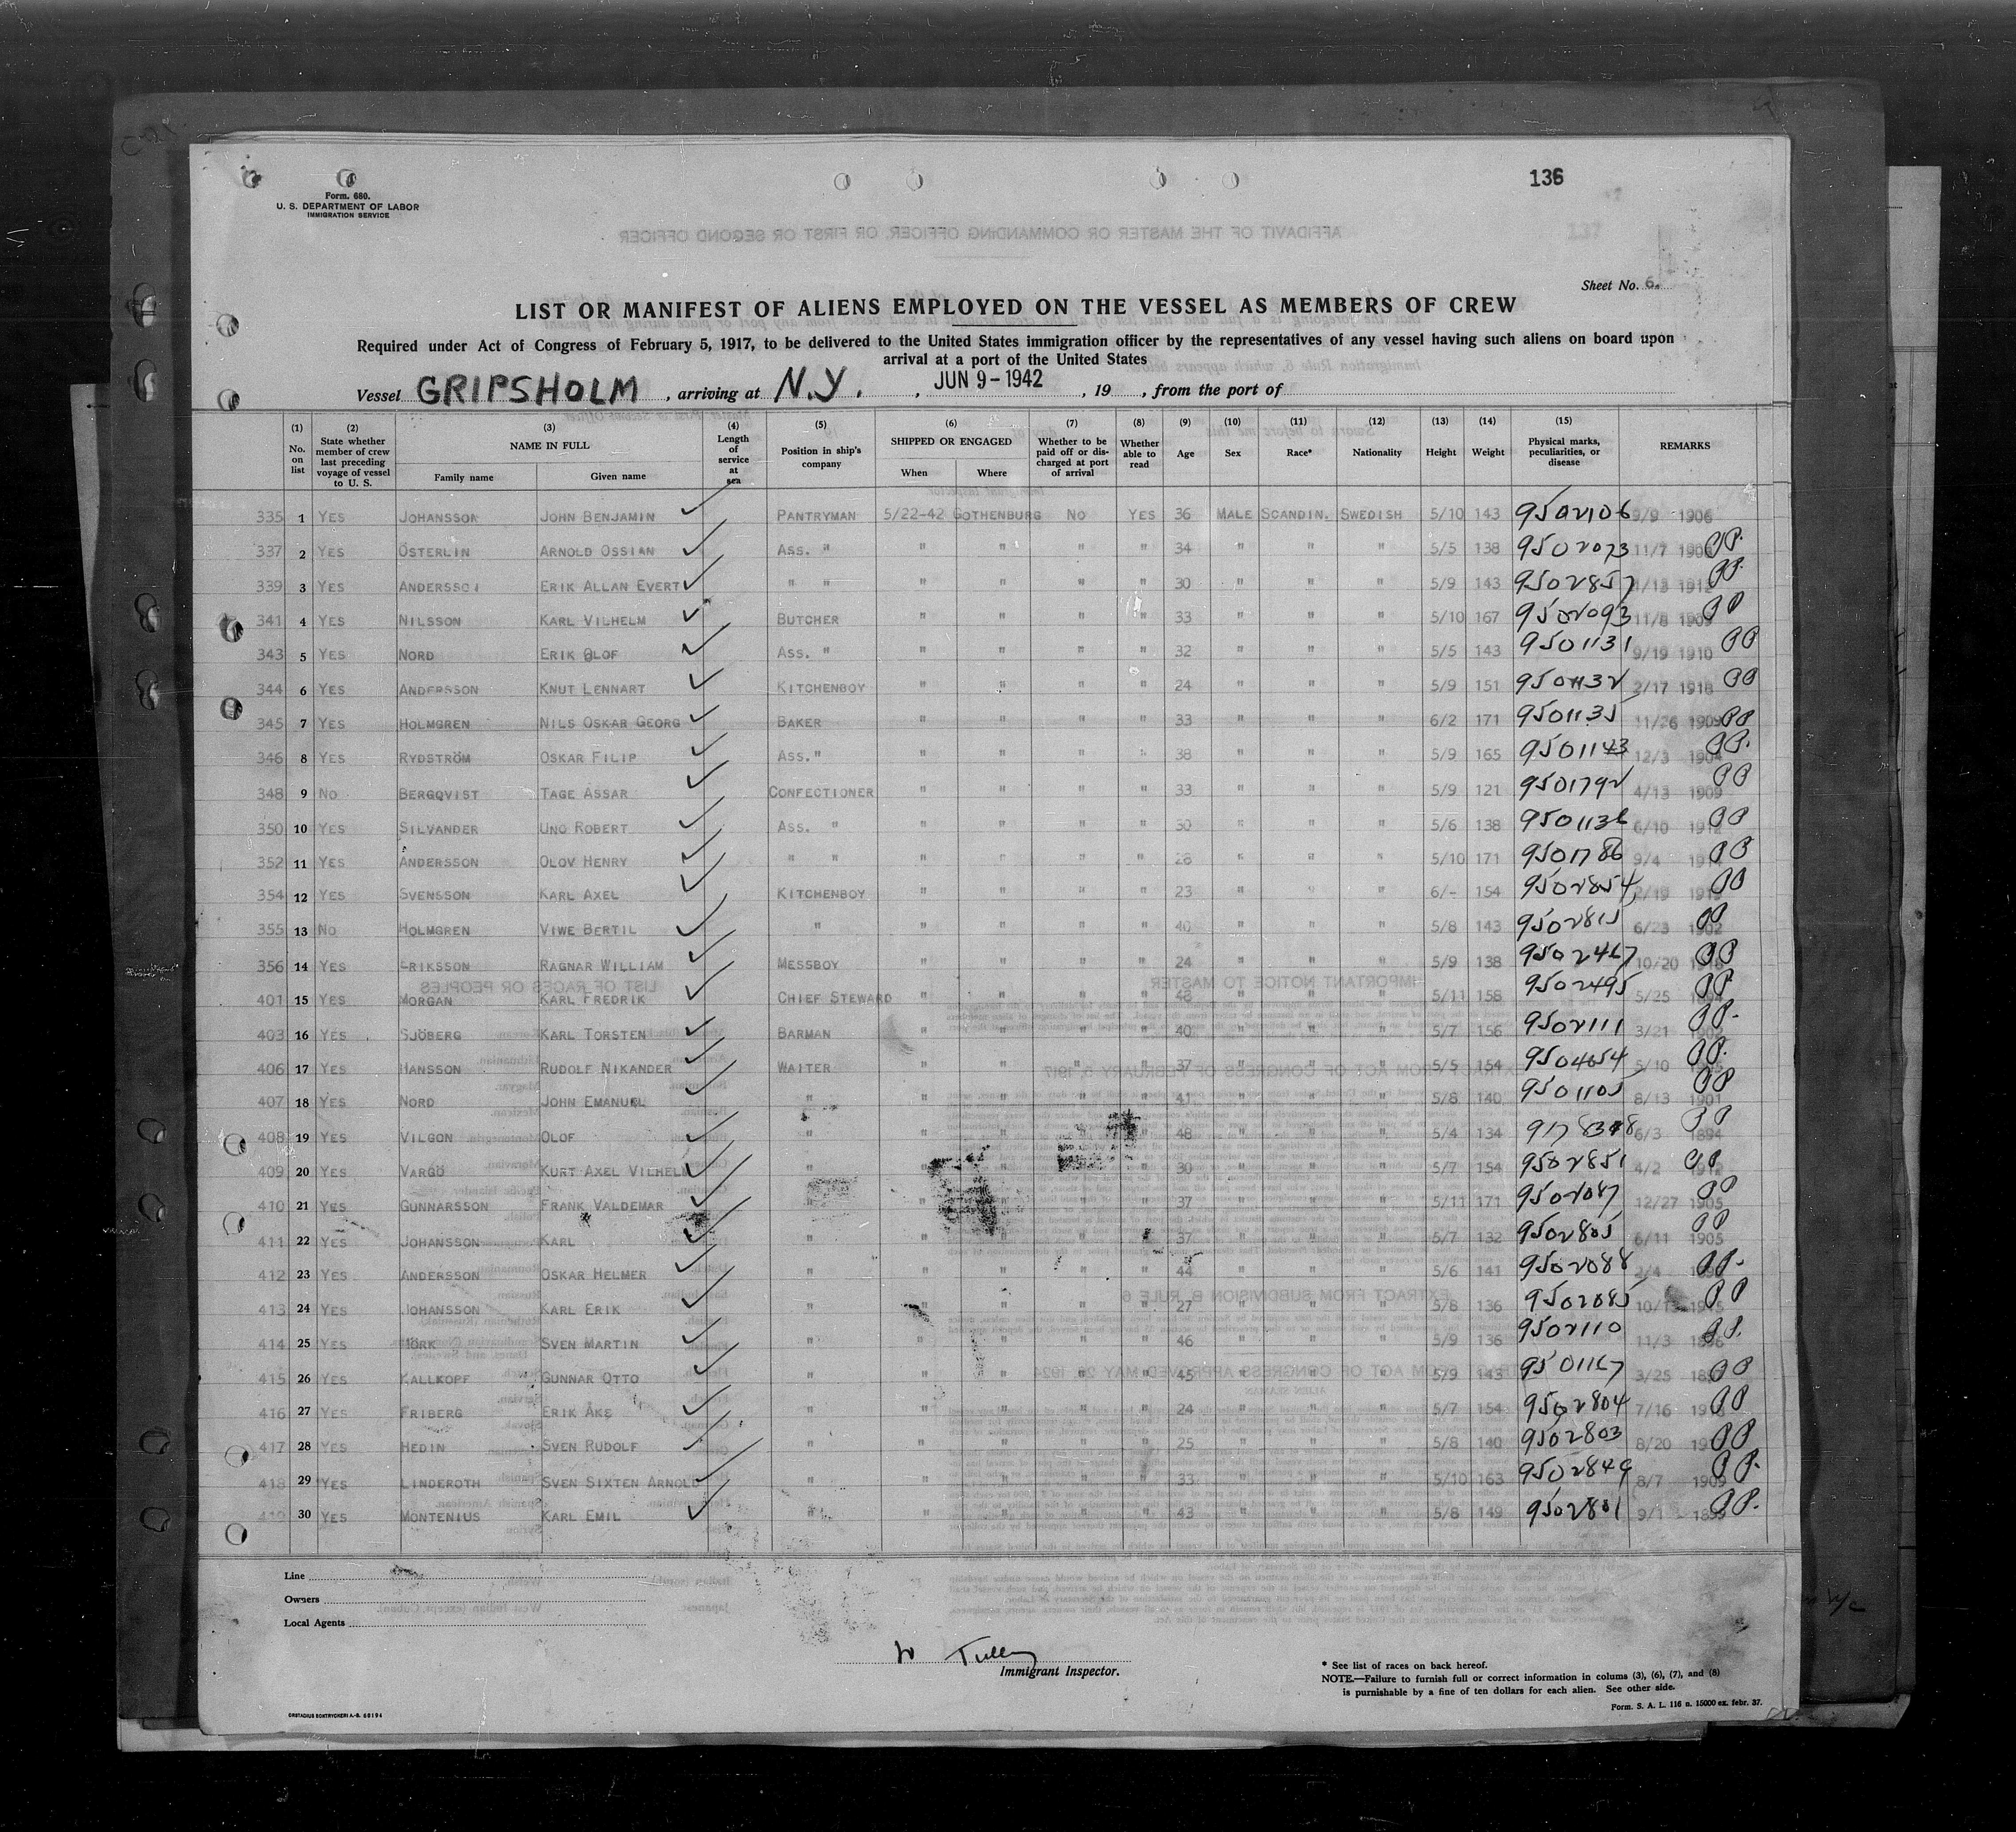 136
Form. 680.
U. S. DEPARTMENT OF LABOR
IMMIGRATION SERVICE
AFFIDAVIT OF THE MASTER OR COMMANDING OFFICER, OR FIRST OR SECOND OFFICER
Sheet No. 6.
LIST OR MANIFEST OF ALIENS EMPLOYED ON THE VESSEL AS MEMBERS OF CREW
Required under Act of Congress of February 5, 1917, to be delivered to the United States immigration officer by the representatives of any vessel having such aliens on board upon
arrival at a port of the United States
Vessel GRIPSHOLM , arriving at N.Y. , JUN 9 - 1942 , 19 , from the port of
(1) No. on list (2) State whether member of crew last preceding voyage of vessel to U. S. (3) NAME IN FULL Family name Given name (4) Length of service at sea (5) Position in ship's company (6) SHIPPED OR ENGAGED When Where (7) Whether to be paid off or discharged at port of arrival (8) Whether able to read (9) Age (10) Sex (11) Race* (12) Nationality (13) Height (14) Weight (15) Physical marks, peculiarities, or disease REMARKS
335 1 YES JOHANSSON JOHN BENJAMIN PANTRYMAN 5/22-42 GOTHENBURG NO YES 36 MALE SCANDIN. SWEDISH 5/10 143 9502106 9/9 1906
337 2 YES ÖSTERLIN ARNOLD OSSIAN ASS. " " " " " 34 " " " 5/5 138 9502073 11/7 PP.
339 3 YES ANDERSSON ERIK ALLAN EVERT " " " " " " 30 " " " 5/9 143 9502857 1/13 1912 PP.
341 4 YES NILSSON KARL VILHELM BUTCHER " " " " 33 " " " 5/10 167 9502093 11/8 1909 PP
343 5 YES NORD ERIK OLOF ASS. " " " " " 32 " " " 5/5 143 9501131 9/19 1910 PP
344 6 YES ANDERSSON KNUT LENNART KITCHENBOY " " " " 24 " " " 5/9 151 9501132 2/17 1918 PP
345 7 YES HOLMGREN NILS OSKAR GEORG BAKER " " " " 33 " " " 6/2 171 9501135 11/26 1909 PP
346 8 YES RYDSTRÖM OSKAR FILIP ASS. " " " " " 38 " " " 5/9 165 9501143 12/3 1904 PP.
348 9 NO BERGQVIST TAGE ASSAR CONFECTIONER " " " " 33 " " " 5/9 121 9501792 4/13 1909 PP
350 10 YES SILVANDER UNO ROBERT ASS. " " " " " 30 " " " 5/6 138 9501136 6/10 1912 PP
352 11 YES ANDERSSON OLOV HENRY " " " " " " 28 " " " 5/10 171 9501786 9/4 PP
354 12 YES SVENSSON KARL AXEL KITCHENBOY " " " " 23 " " " 6/- 154 9502854 2/19 1919 PP
355 13 NO HOLMGREN VIWE BERTIL " " " " " 40 " " " 5/8 143 9502815 6/23 1902 PP
356 14 YES ERIKSSON RAGNAR WILLIAM MESSBOY " " " " 24 " " " 5/9 138 9502467 10/20 PP
401 15 YES MORGAN KARL FREDRIK CHIEF STEWARD " " " " 48 " " " 5/11 158 9502495 5/25 1894 PP
403 16 YES SJÖBERG KARL TORSTEN BARMAN " " " " 40 " " " 5/7 156 9502111 3/21 1902 PP.
406 17 YES HANSSON RUDOLF NIKANDER WAITER " " " " 37 " " " 5/5 154 9504654 5/10 PP.
407 18 YES NORD JOHN EMANUEL " " " " " 41 " " " 5/8 140 9501105 8/13 1901 PP
408 19 YES VILGON OLOF " " " " " 48 " " " 5/4 134 6/3 1894 PP
409 20 YES VARGÖ KURT AXEL VILHELM " " " " " 30 " " " 5/7 154 9502851 4/2 1912 PP
410 21 YES GUNNARSSON FRANK VALDEMAR " " " " " 37 " " " 5/11 171 9502087 12/27 1905 PP
411 22 YES JOHANSSON KARL " " " " " 37 " " " 5/7 132 9502805 6/11 1905 PP
412 23 YES ANDERSSON OSKAR HELMER " " " " " 44 " " " 5/6 141 9502088 2/4 PP.
413 24 YES JOHANSSON KARL ERIK " " " " " 27 " " " 5/8 136 9502085 1915 PP
414 25 YES HÖRK SVEN MARTIN " " " " " 46 " " " 5/9 136 9502110 11/3 1896 PP.
415 26 YES KALLKOPF GUNNAR OTTO " " " " " 45 " " " 5/9 143 9501167 3/25 PP
416 27 YES FRIBERG ERIK ÅKE " " " " " 24 " " " 5/7 154 9502804 7/16 PP
417 28 YES HEDIN SVEN RUDOLF " " " " " 25 " " " 5/8 140 9502803 8/20 PP
418 29 YES LINDEROTH SVEN SIXTEN ARNOLD " " " " " 33 " " " 5/10 163 9502849 8/7 1909 PP.
419 30 YES MONTENIUS KARL EMIL " " " " " 43 " " " 5/8 149 9502801 9/1 1899 PP.
Line
Owners
Local Agents
W Tully
Immigrant Inspector.
* See list of races on back hereof.
NOTE.—Failure to furnish full or correct information in colums (3), (6), (7), and (8)
is punishable by a fine of ten dollars for each alien. See other side.
Form. S. A. L. 116 n. 15000 ex. febr. 37.
ORSTADIUS BOKTRYCKERI A.-B. 60194